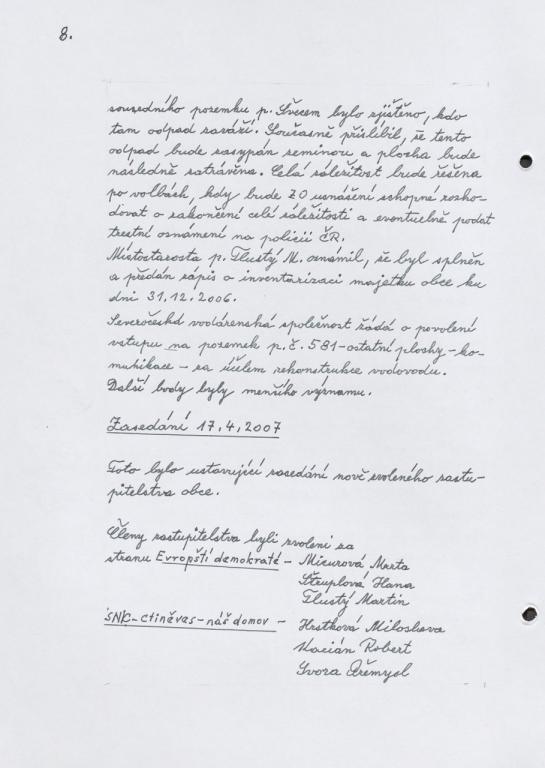 8.
sousedního pozemku p. Švecem bylo zjištěno, kdo
tam odpad zaváží. Současně přislíbil, že tento
odpad bude zasypán zeminou a plocha bude
následně zatrávněna. Celá záležitost bude řešena
po volbách, kdy bude ZO usnášení schopné rozho-
dovat o zakončení celé záležitosti a eventuelně podat
trestní oznámení na policii ČR.
Místostarosta p. Tlustý M. oznámil, že byl splněn
a předán zápis o inventarizaci majetku obce ku
dni 31.12.2006.
Severočeská vodárenská společnost žádá o povolení
vstupu na pozemek p.č. 581-ostatní plochy-ko-
munikace - za účelem rekonstrukce vodovodu.
Další body byly menšího významu.
Zasedání 17.4.2007
Toto bylo ustavující zasedání nově zvoleného zastu-
pitelstva obce.
Členy zastupitelstva byli zvoleni za
stranu Evropští demokraté - Micurová Marta
Štruplová Hana
Tlustý Martin
SNK-Ctiněves-náš domov - Hrstková Miloslava
Kacián Robert
Svora Přemysl